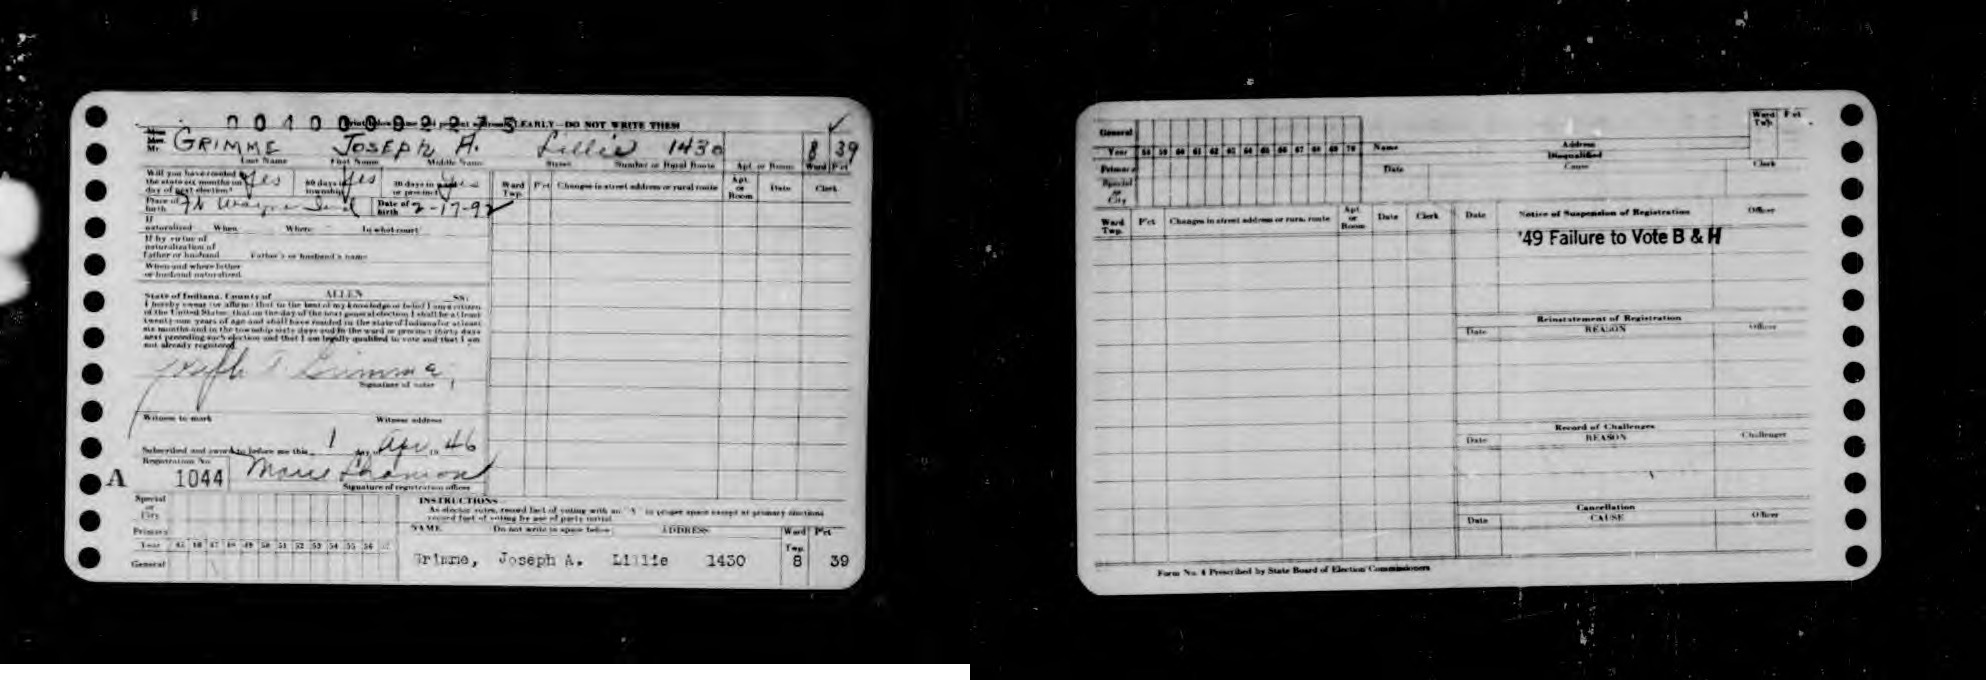 Print below name and present address CLEARLY—DO NOT WRITE THEM
GRIMME JOSEPH A. Lillie 1430 8 39
Last Name First Name Middle Name Street Number or Rural Route Apt. or Room Ward Pct
Will you have resided in the state six months on day of next election? Yes 60 days in township Yes 30 days in ward or precinct Yes
Ward Twp. Pct Changes in street address or rural route Apt. or Room Date Clerk
Place of birth Ft Wayne Ind Date of birth 2-17-92
If naturalized When Where In what court
If by virtue of
naturalization of
Father or husband Father's or husband's name
When and where father
or husband naturalized
State of Indiana, County of ALLEN SS:
I hereby swear (or affirm) that to the best of my knowledge or belief I am a citizen
of the United States; that on the day of the next general election I shall be at least
twenty-one years of age and shall have resided in the state of Indiana for at least
six months and in the township sixty days and in the ward or precinct thirty days
next preceding such election and that I am legally qualified to vote and that I am
not already registered.
Joseph Grimme
Signature of voter
Witness to mark Witness address
Subscribed and sworn to before me this 1 day of Apr. 19 46
Registration No.
A 1044 Marie
Signature of registration officer
Special
or
City
Primary
Year 45 46 47 48 49 50 51 52 53 54 55 56
General
INSTRUCTIONS
As elector votes, record fact of voting with an "X" in proper space except at primary elections
record fact of voting by use of party initial.
NAME Do not write in space below ADDRESS Ward Twp. Pct
Grimme, Joseph A. Lillie 1430 8 39
General
Year 58 59 60 61 62 63 64 65 66 67 68 69 70
Primary
Special
or
City
Name Address Ward Twp. Pct
Disqualified
Date Cause Clerk
Ward Twp. Pct Changes in street address or rural route Apt. or Room Date Clerk
Date Notice of Suspension of Registration Officer
'49 Failure to Vote B & H
Reinstatement of Registration
Date REASON Officer
Record of Challenges
Date REASON Challenger
Cancellation
Date CAUSE Officer
Form No. 4 Prescribed by State Board of Election Commissioners